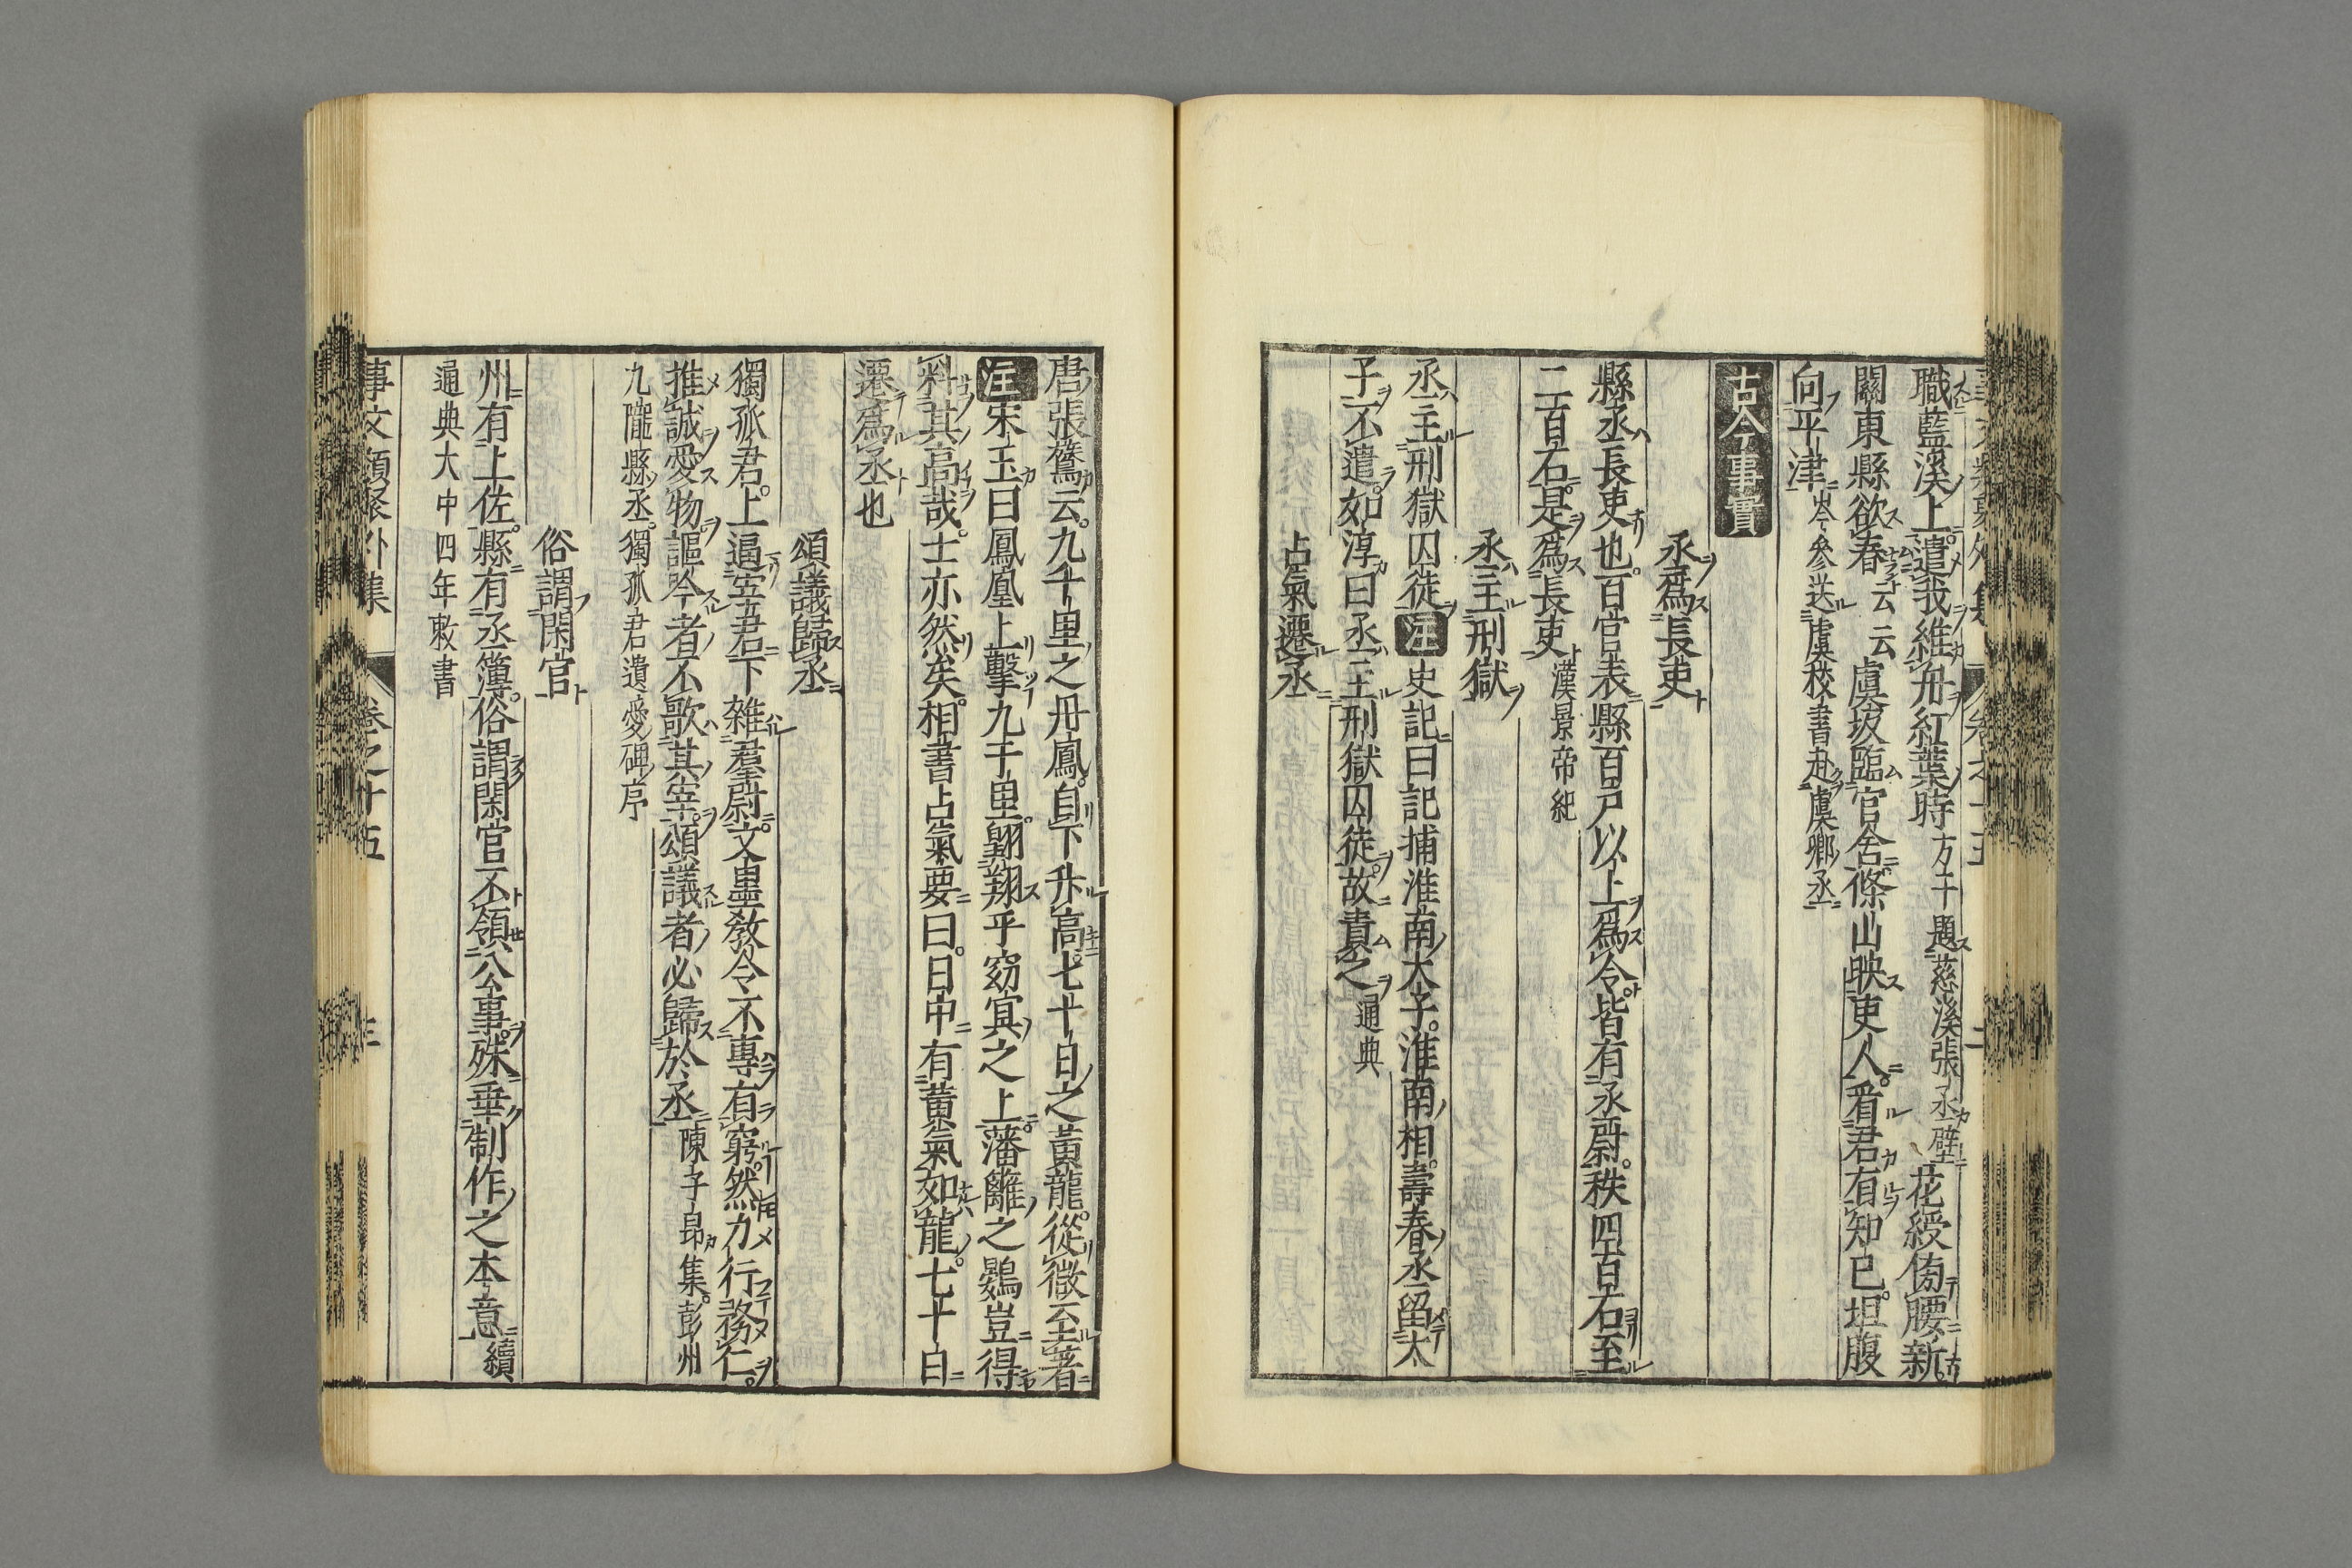 職藍溪上遣我維舟紅葉時方干題慈溪張丞壁花綬傍腰新
關東縣欲春云云虞坂臨官舍條山映吏人看君有知已坦腹
向平津岑參送虞校書赴虞鄉丞
古今事實
丞爲長吏
縣丞長吏也百官表縣百戸以上爲令皆有丞尉秩四百石至
二百石是爲長吏漢景帝紀
丞主刑獄
丞主刑獄囚徒注史記曰記捕淮南太子淮南相壽春丞留太
子不遣如淳曰丞主刑獄囚徒故責之通典
占氣遷丞
唐張鷟云九千里之丹鳳自下升高七十日之黃龍從微至著
注宋玉曰鳳凰上擊九千里翺翔乎窈冥之上藩籬之鷃豈得
料其高哉士亦然矣相書占氣要曰日中有黃氣如龍七十日
遷爲丞也
頌議歸丞
獨孤君上逼宰君下雜羣尉文墨教令不專有窮然力行務仁
推誠愛物謳吟者不歌其宰頌議者必歸於丞陳子昻集彭州
九隴縣丞獨孤君遺愛碑序
俗謂閑官
州有上佐縣有丞簿俗謂閑官不領公事殊乖制作之本意續
通典大中四年敕書
事文類聚外集 卷之十五 三